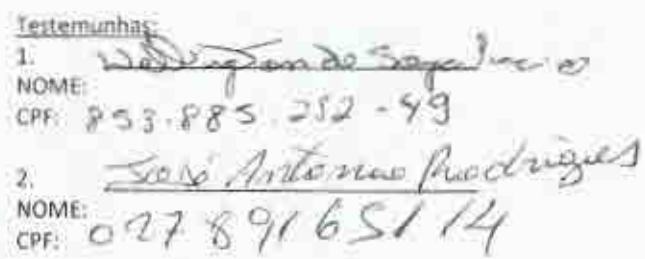 Testemunhas:
1. Wellington de Souza
NOME:
CPF: 853.885.252-49
2. José Antonio Rodrigues
NOME:
CPF: 027 891651 14